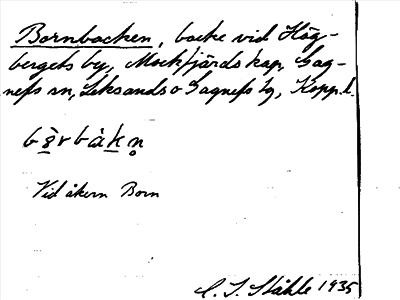 Bornbacken, backe vid Hög-
bergets by, Mockfjärds kap, Gag-
nefs sn, Leksands o Gagnefs tg, Kopp. l.
Vid åkern Born
C. I. Ståhle 1935